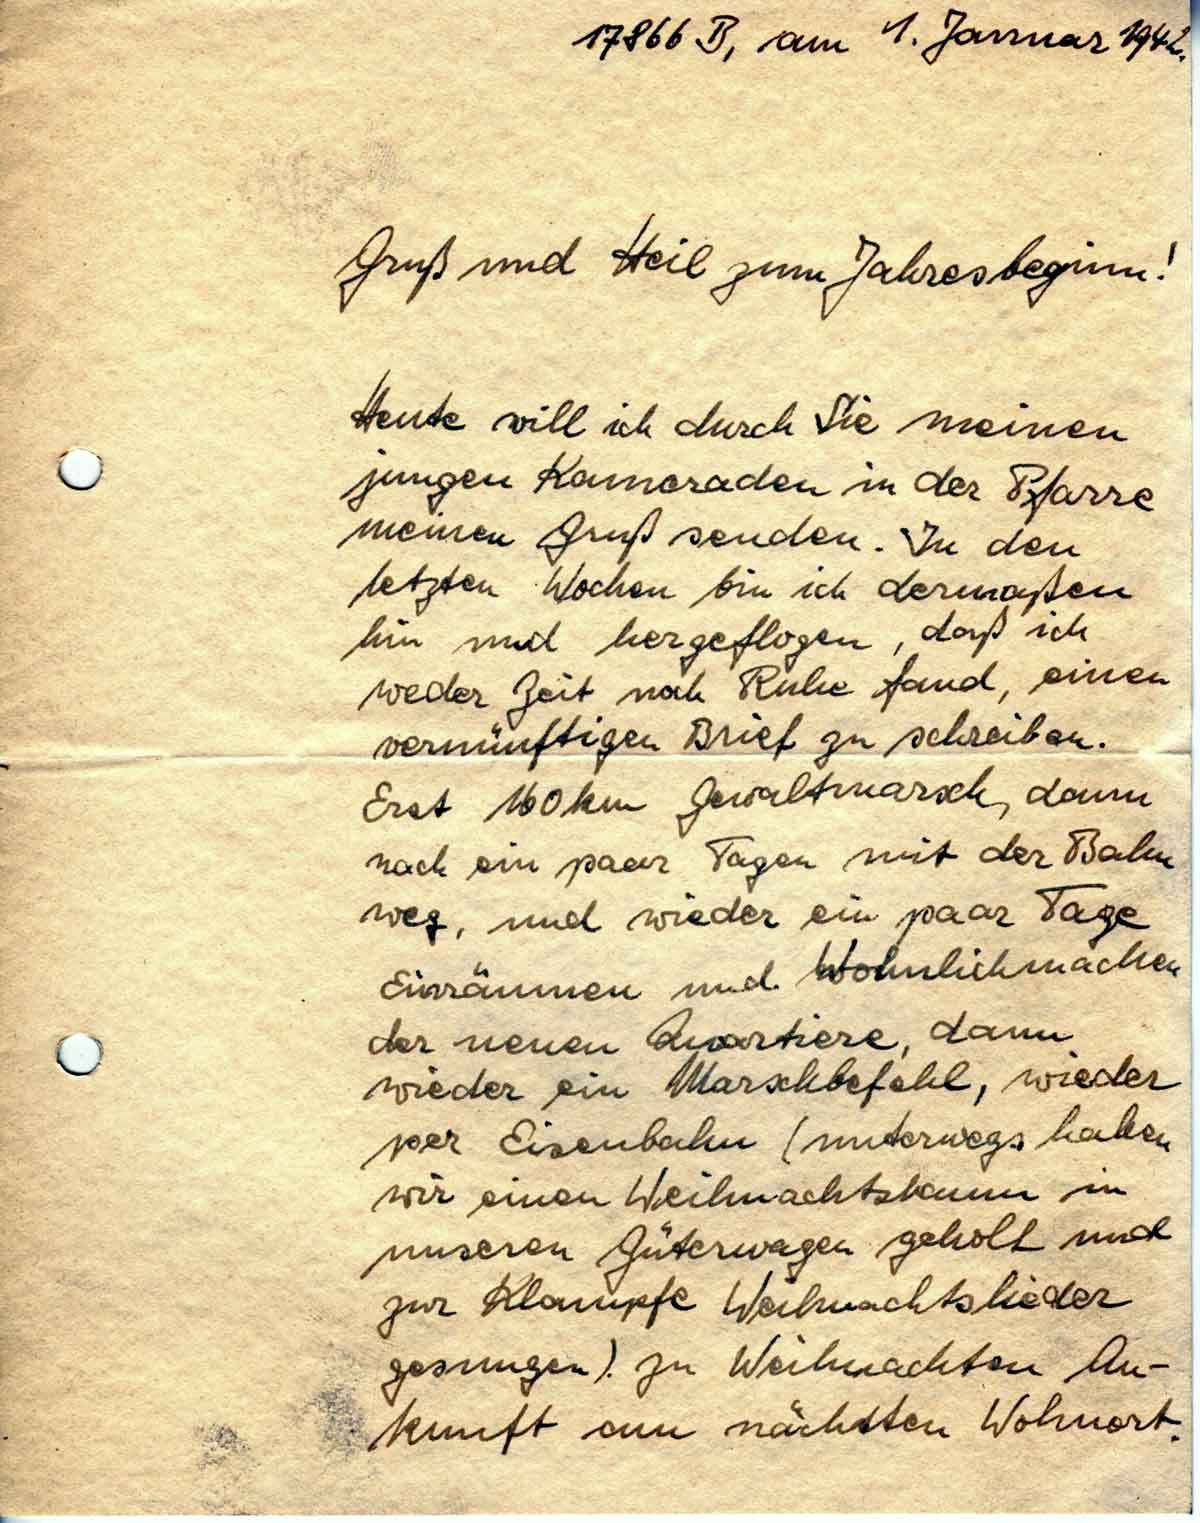 17866 B, am 1. Januar 1942.
Gruß und Heil zum Jahresbeginn!
Heute will ich durch Sie meinen
jungen Kameraden in der Pfarre
meinen Gruß senden. In den
letzten Wochen bin ich dermaßen
hin und hergeflogen, daß ich
weder Zeit noch Ruhe fand, einen
vernünftigen Brief zu schreiben.
Erst 160 km Gewaltmarsch, dann
nach ein paar Tagen mit der Bahn
weg, und wieder ein paar Tage
Einräumen und Wohnlichmachen
der neuen Quartiere, dann
wieder ein Marschbefehl, wieder
per Eisenbahn (unterwegs haben
wir einen Weihnachtsbaum in
unseren Güterwagen geholt und
zur Klampfe Weihnachtslieder
gesungen). Zu Weihnachten An-
kunft am nächsten Wohnort.